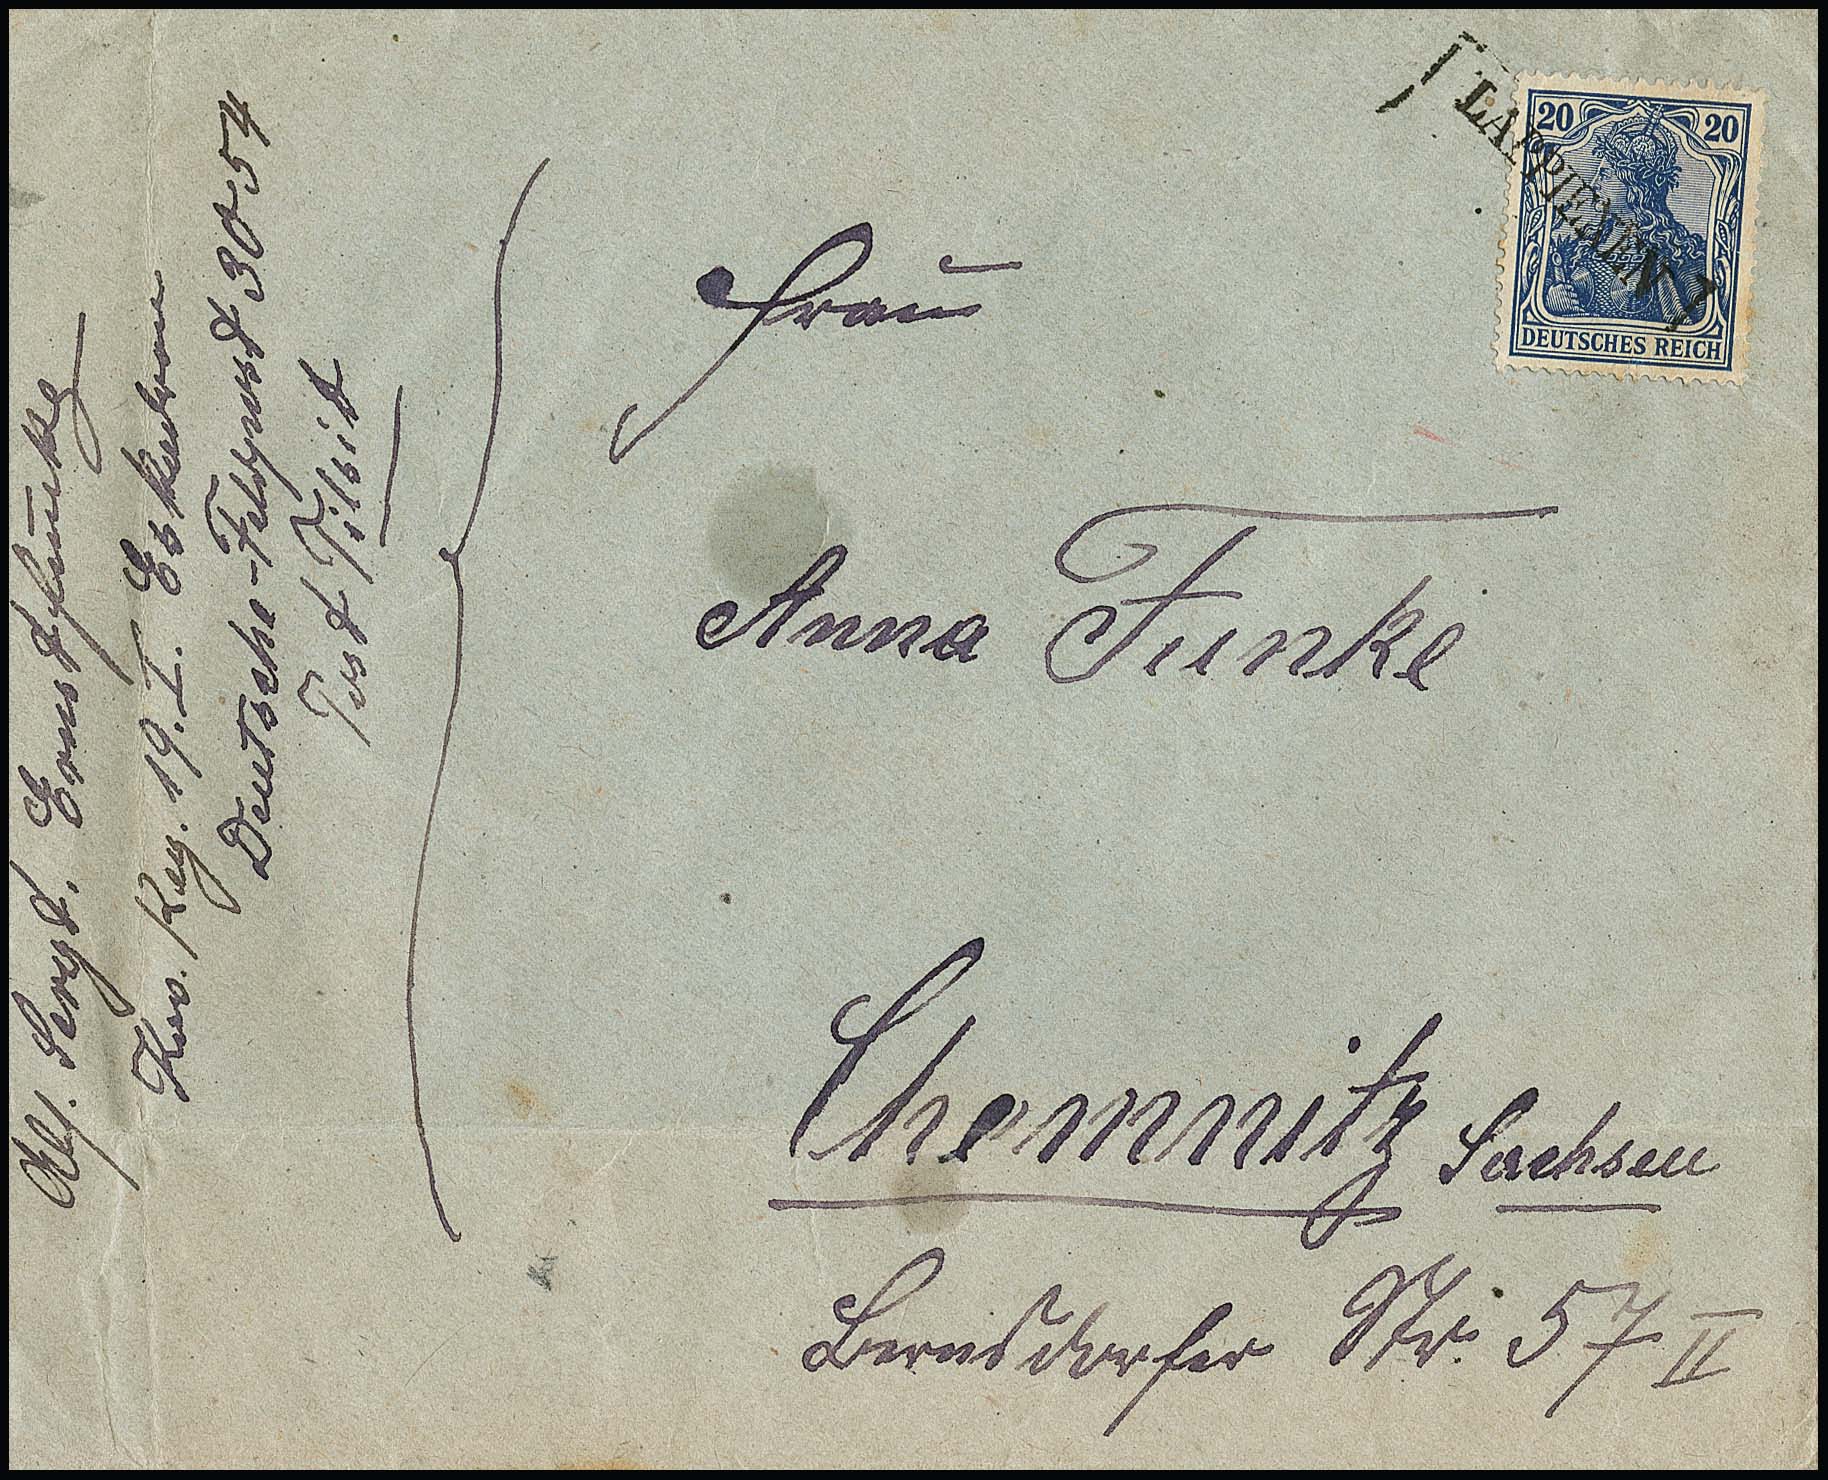 LAPPIENEN
20 20
DEUTSCHES REICH
Frau
Anna Funke
Chemnitz Sachsen
Bernsdorfer Str. 57 II
Abs. Sergt. Ernst Funke
Reg. 19. I. Eskadron
Deutsche-Feldpost 3054
Post Tilsit